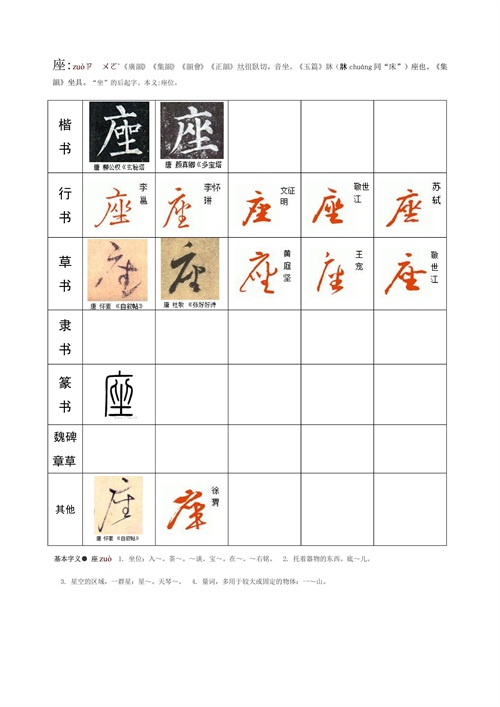 座: zuòㄗ ㄨㄛˋ《廣韻》《集韻》《韻會》《正韻》𠀤徂臥切，音坐。《玉篇》牀（牀 chuáng 同“床”）座也。《集
韻》坐具。“坐”的后起字。本义:座位。
楷书
座 座
唐 柳公权《玄秘塔 唐 颜真卿《多宝塔
行书
座 李邕 座 李怀琳 座 文征明 座 敬世江 座 苏轼
草书
座 座 座 黄庭坚 座 王宠 座 敬世江
唐 怀素《自叙帖》 唐 杜牧《张好好诗
隶书
篆书
座
魏碑
章草
其他
座 座 徐渭
唐 怀素《自叙帖》
基本字义● 座 zuò 1. 坐位：入～。茶～。～谈。宝～。在～。～右铭。 2. 托着器物的东西。底～儿。
3. 星空的区域，一群星：星～。天琴～。 4. 量词，多用于较大或固定的物体：一～山。